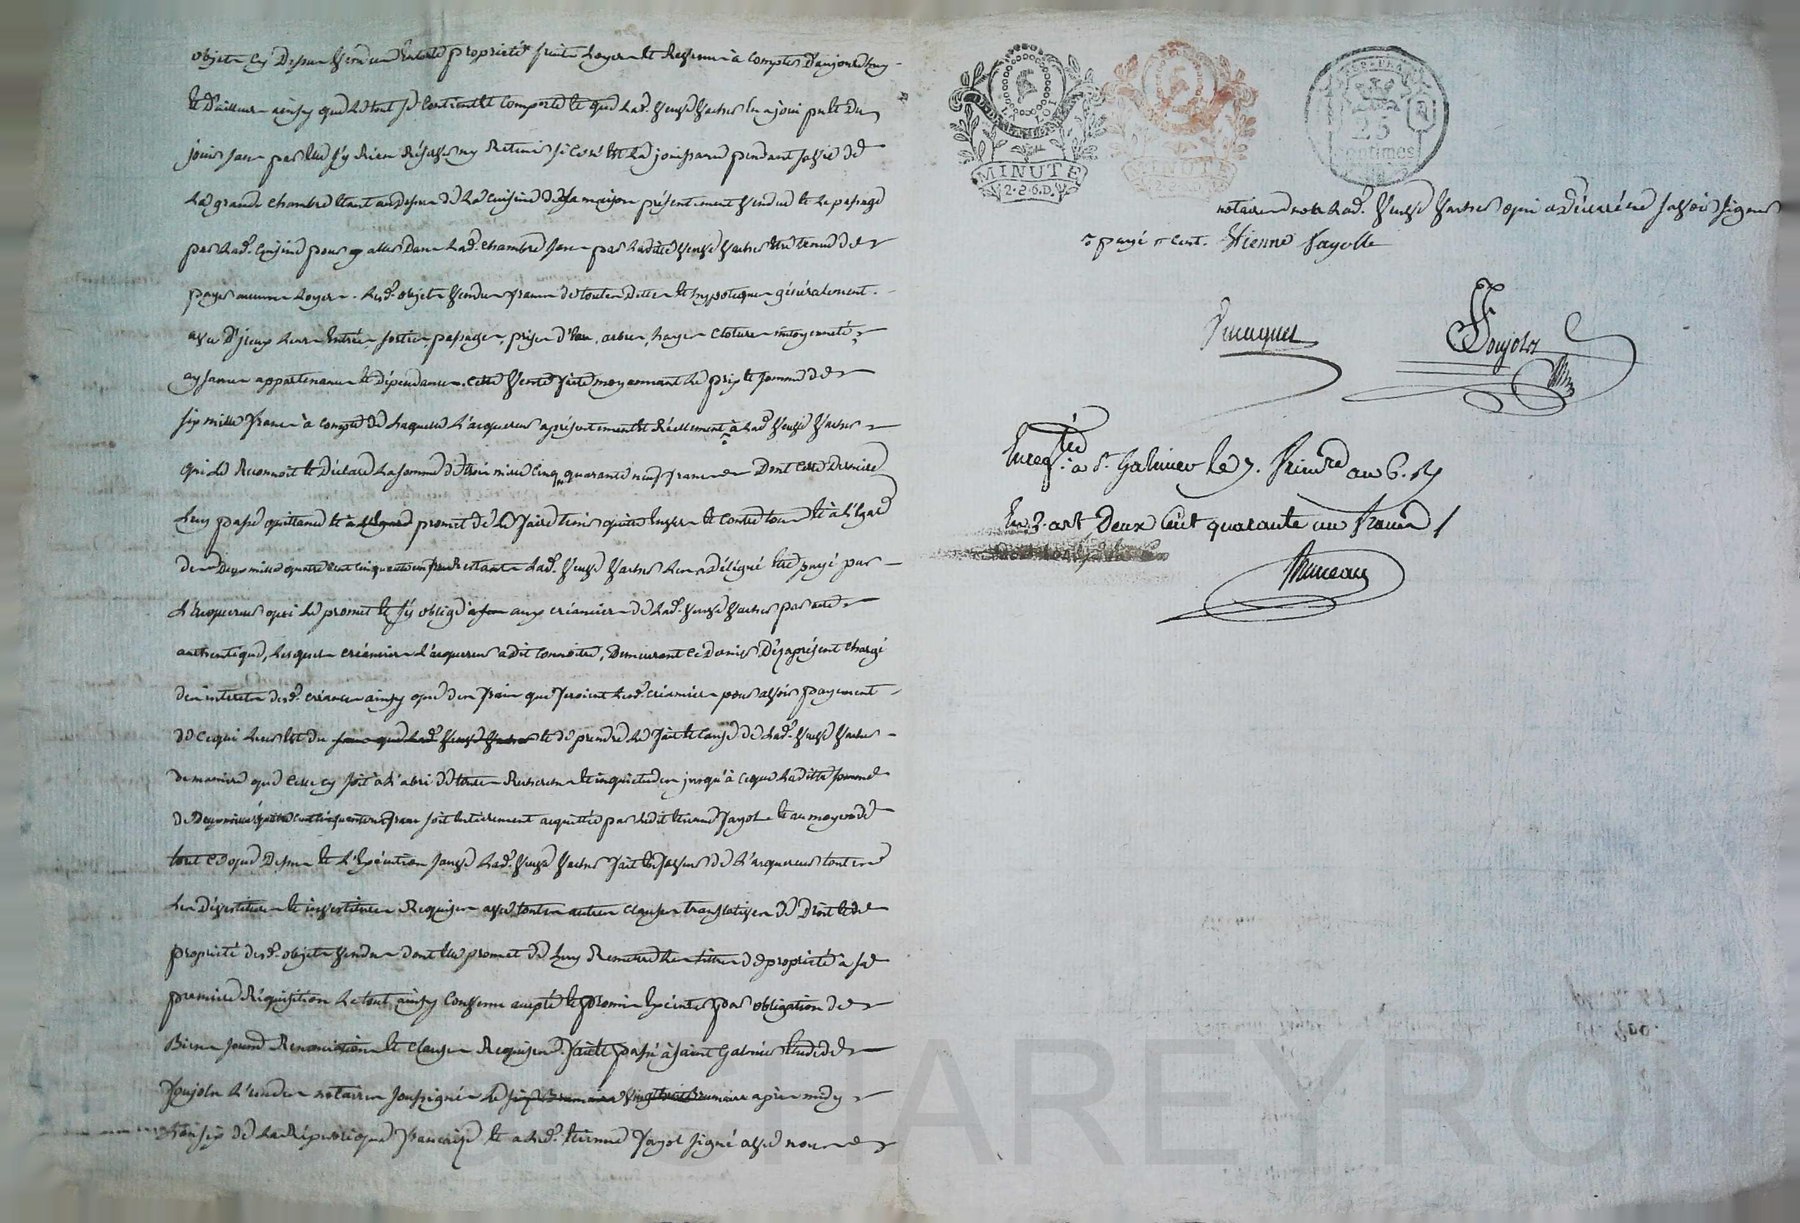 objets cy dessus vendus en toute propriété fruits loyers et revenus à compter d'aujourdhuy
et d'ailleurs ainsy que le tout se contient et comporte et que lad. veuve vacher en a joui pu et du
jouir sans par elle s'y rien réserver ny retenir si ce n'est la jouissance pendant sa vie de
la grande chambre étant au dessus de la cuisine de la maison présentement vendue et le passage
par lad. cuisine pour y aller dans lad. chambre sans par ladite veuve vacher être tenue de
payer aucuns loyers. lesd. objets vendus francs de toutes dettes et hypoteques généralement
avec d'iceux leurs entrées, sorties, passages, prises d'eau, arbres, hayes clotures mitoyenneté,
aysances appartenances et dépendances. cette vente faite moyennant le prix et somme de
six mille francs à compte de laquelle l'acquereur a présentement et réellement à lad. veuve vacher
qui le reconnoit et déclare la somme de trois mille cinq quarante neuf francs dont cette derniere
luy passe quittance et promet de le faire tenir quitte envers et contre tous et à l'égard
des deux mille quatre cent cinquante un francs restants lad. veuve vacher les a délégué être payé par
l'acquereur qui le promet et s'y oblige aux créanciers de lad. veuve vacher par acte
authentique, lesquels créanciers l'acquereur a dit connoitre, demeurant ce dernier dès à présent chargé
des interets desd. créances ainsy que des frais que feroient lesd. créanciers pour avoir payement
de ce qui leur est du et de prendre le fait et cause de lad. veuve vacher
de maniere que celle cy soit à l'abri de toutes recherches et inquietudes jusqu'à ce que laditte somme
de deux mille quatre cent cinquante un francs soit entierement acquittée par ledit Etienne Fayol et au moyen de
tout ce que dessus et l'exécution sauve lad. veuve vacher fait en faveur de l'acquereur toutes
les dévestitures et investitures requises avec toutes autres clauses translatives de droit et de
propriété desd. objets vendus dont elle promet de luy remettre les titres de propriété à sa
premiere réquisition le tout ainsy convenu accepté et promis exécuter par obligation de
biens soumis renonciations et clauses requises. fait et passé à saint Galmier étude de
Foujols l'un des notaires soussignés le vingt trois Brumaire apres midy
l'an six de la République française et a led. Etienne Fayol signé avec nous
MINUTE
2.2.6.D.
MINUTE
25
centimes
notaires non lad. veuve vacher qui a déclaré ne savoir signer
payé cent. Etienne Fayolle
Foujols
Enreg.tré à St. Galmier le 7. frimre an 6. 
deux cent quarante un francs
CHAREYRON